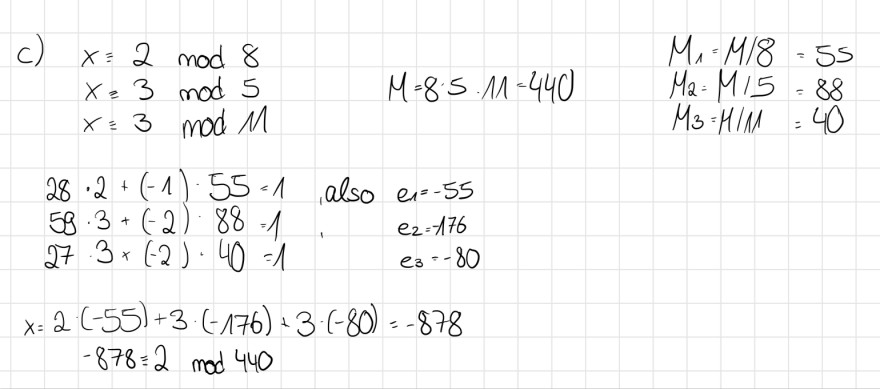 c) x ≡ 2 mod 8
x ≡ 3 mod 5
x ≡ 3 mod 11
M = 8·5·11 = 440
M₁ = M/8 = 55
M₂ = M/5 = 88
M₃ = M/11 = 40
28 · 2 + (-1) · 55 = 1 , also e₁ = -55
59 · 3 + (-2) · 88 = 1 , e₂ = -176
27 · 3 + (-2) · 40 = 1 e₃ = -80
x = 2·(-55) + 3·(-176) + 3·(-80) = -878
-878 ≡ 2 mod 440